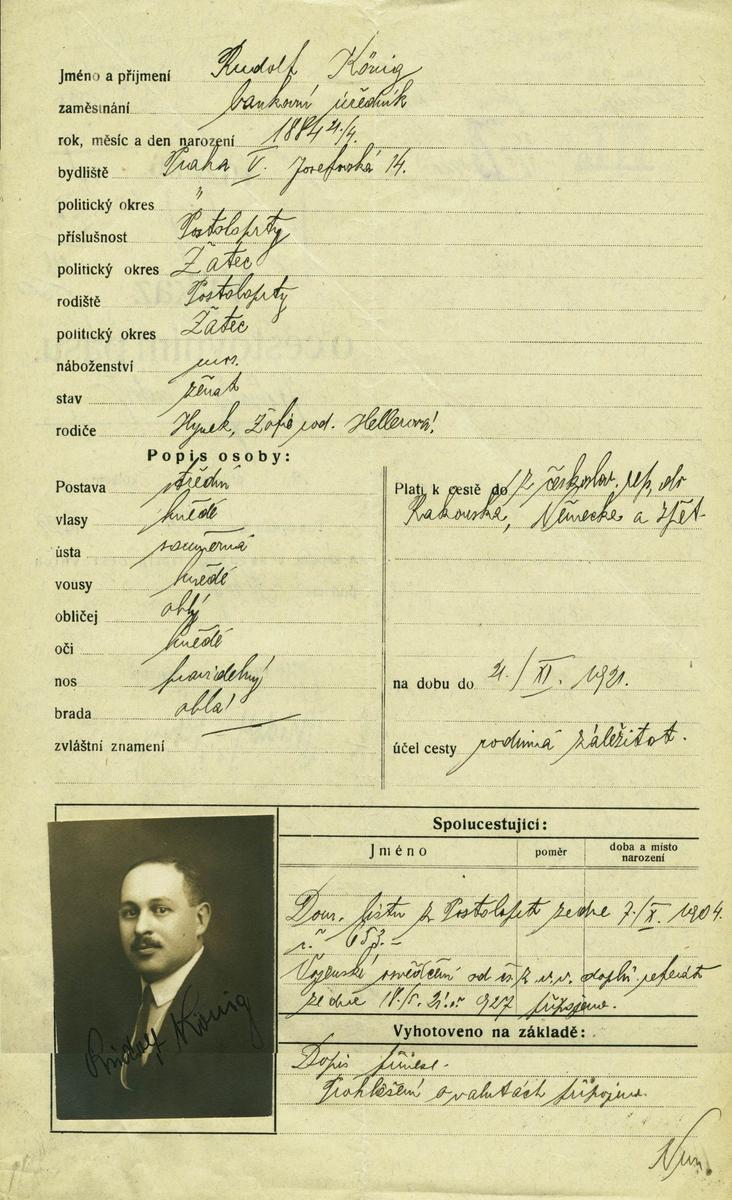 Jméno a příjmení Rudolf König
zaměstnání bankovní úředník
rok, měsíc a den narození 1884 21/4.
bydliště Praha V. Josefovská 14.
politický okres "
příslušnost Postoloprty
politický okres Žatec
rodiště Postoloprty
politický okres Žatec
náboženství mos.
stav ženat
rodiče Hynek, Žofie rod. Hellerová!
Popis osoby:
Postava střední
vlasy hnědé
ústa souměrná
vousy hnědé
obličej oblý
oči hnědé
nos pravidelný
brada oblá
zvláštní znamení
Platí k cestě do z českoslov. rep. do
Rakouska, Německa a zpět
na dobu do 21/XI. 1921.
účel cesty rodinná záležitost.
Spolucestující:
Jméno poměr doba a místo narození
Dom. listu z Postoloprt ze dne 7./X. 1904.
č. 653.-
Vojenské osvědčení od doplň. referát
ze dne 18./5. 21 č. 927 připojeno.
Rudolf König
Vyhotoveno na základě:
Dopis
Prohlášení o valutách připojeno.